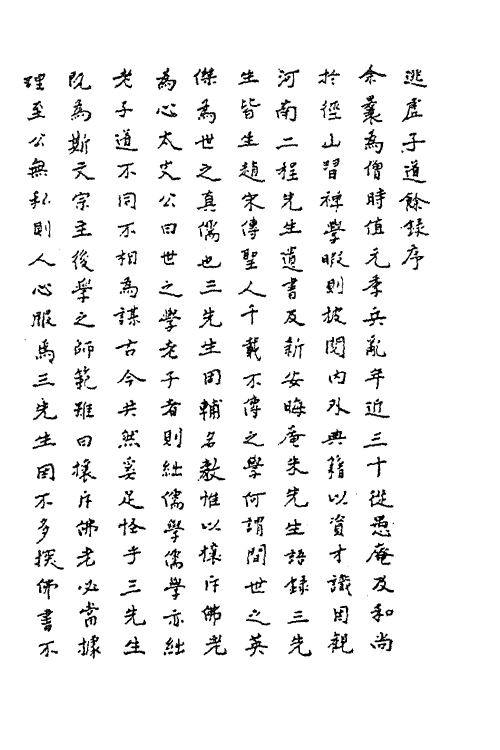 逃虛子道餘錄序
余曩為僧時值元季兵亂年近三十從愚庵及和尚
於徑山習禪學暇則披閱內外典籍以資才識因觀
河南二程先生遺書及新安晦庵朱先生語錄三先
生皆生趙宋傳聖人千載不傳之學何謂間世之英
傑為世之真儒也三先生因輔名教惟以攘斥佛老
為心太史公曰世之學老子者則絀儒學儒學亦絀
老子道不同不相為謀古今共然奚足怪乎三先生
既為斯文宗主後學之師範雖曰攘斥佛老必當據
理至公無私則人心服焉三先生因不多探佛書不